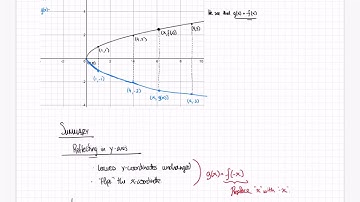 We see that g(x) = -f(x)
g(x)=
(1,1)
(4,2)
(x, f(x))
(9,3)
(0,0)
(1,-1)
(4,-2)
(x, g(x))
(9,-3)
Summary
Reflecting in y-axis
- Leaves y-coordinates unchanged
- "Flips" the x-coordinate
g(x) = f(-x)
Replace "x" with "-x"